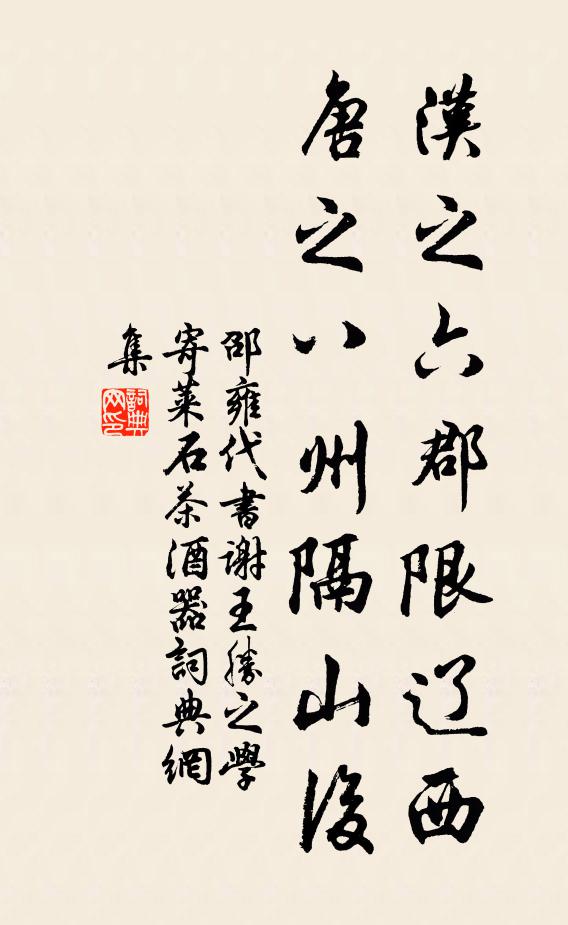 漢之六郡限辽西
唐之八州隔山後
邵雍代書謝王勝之學
寄莱石茶酒器詞典網
集
詞典
网印